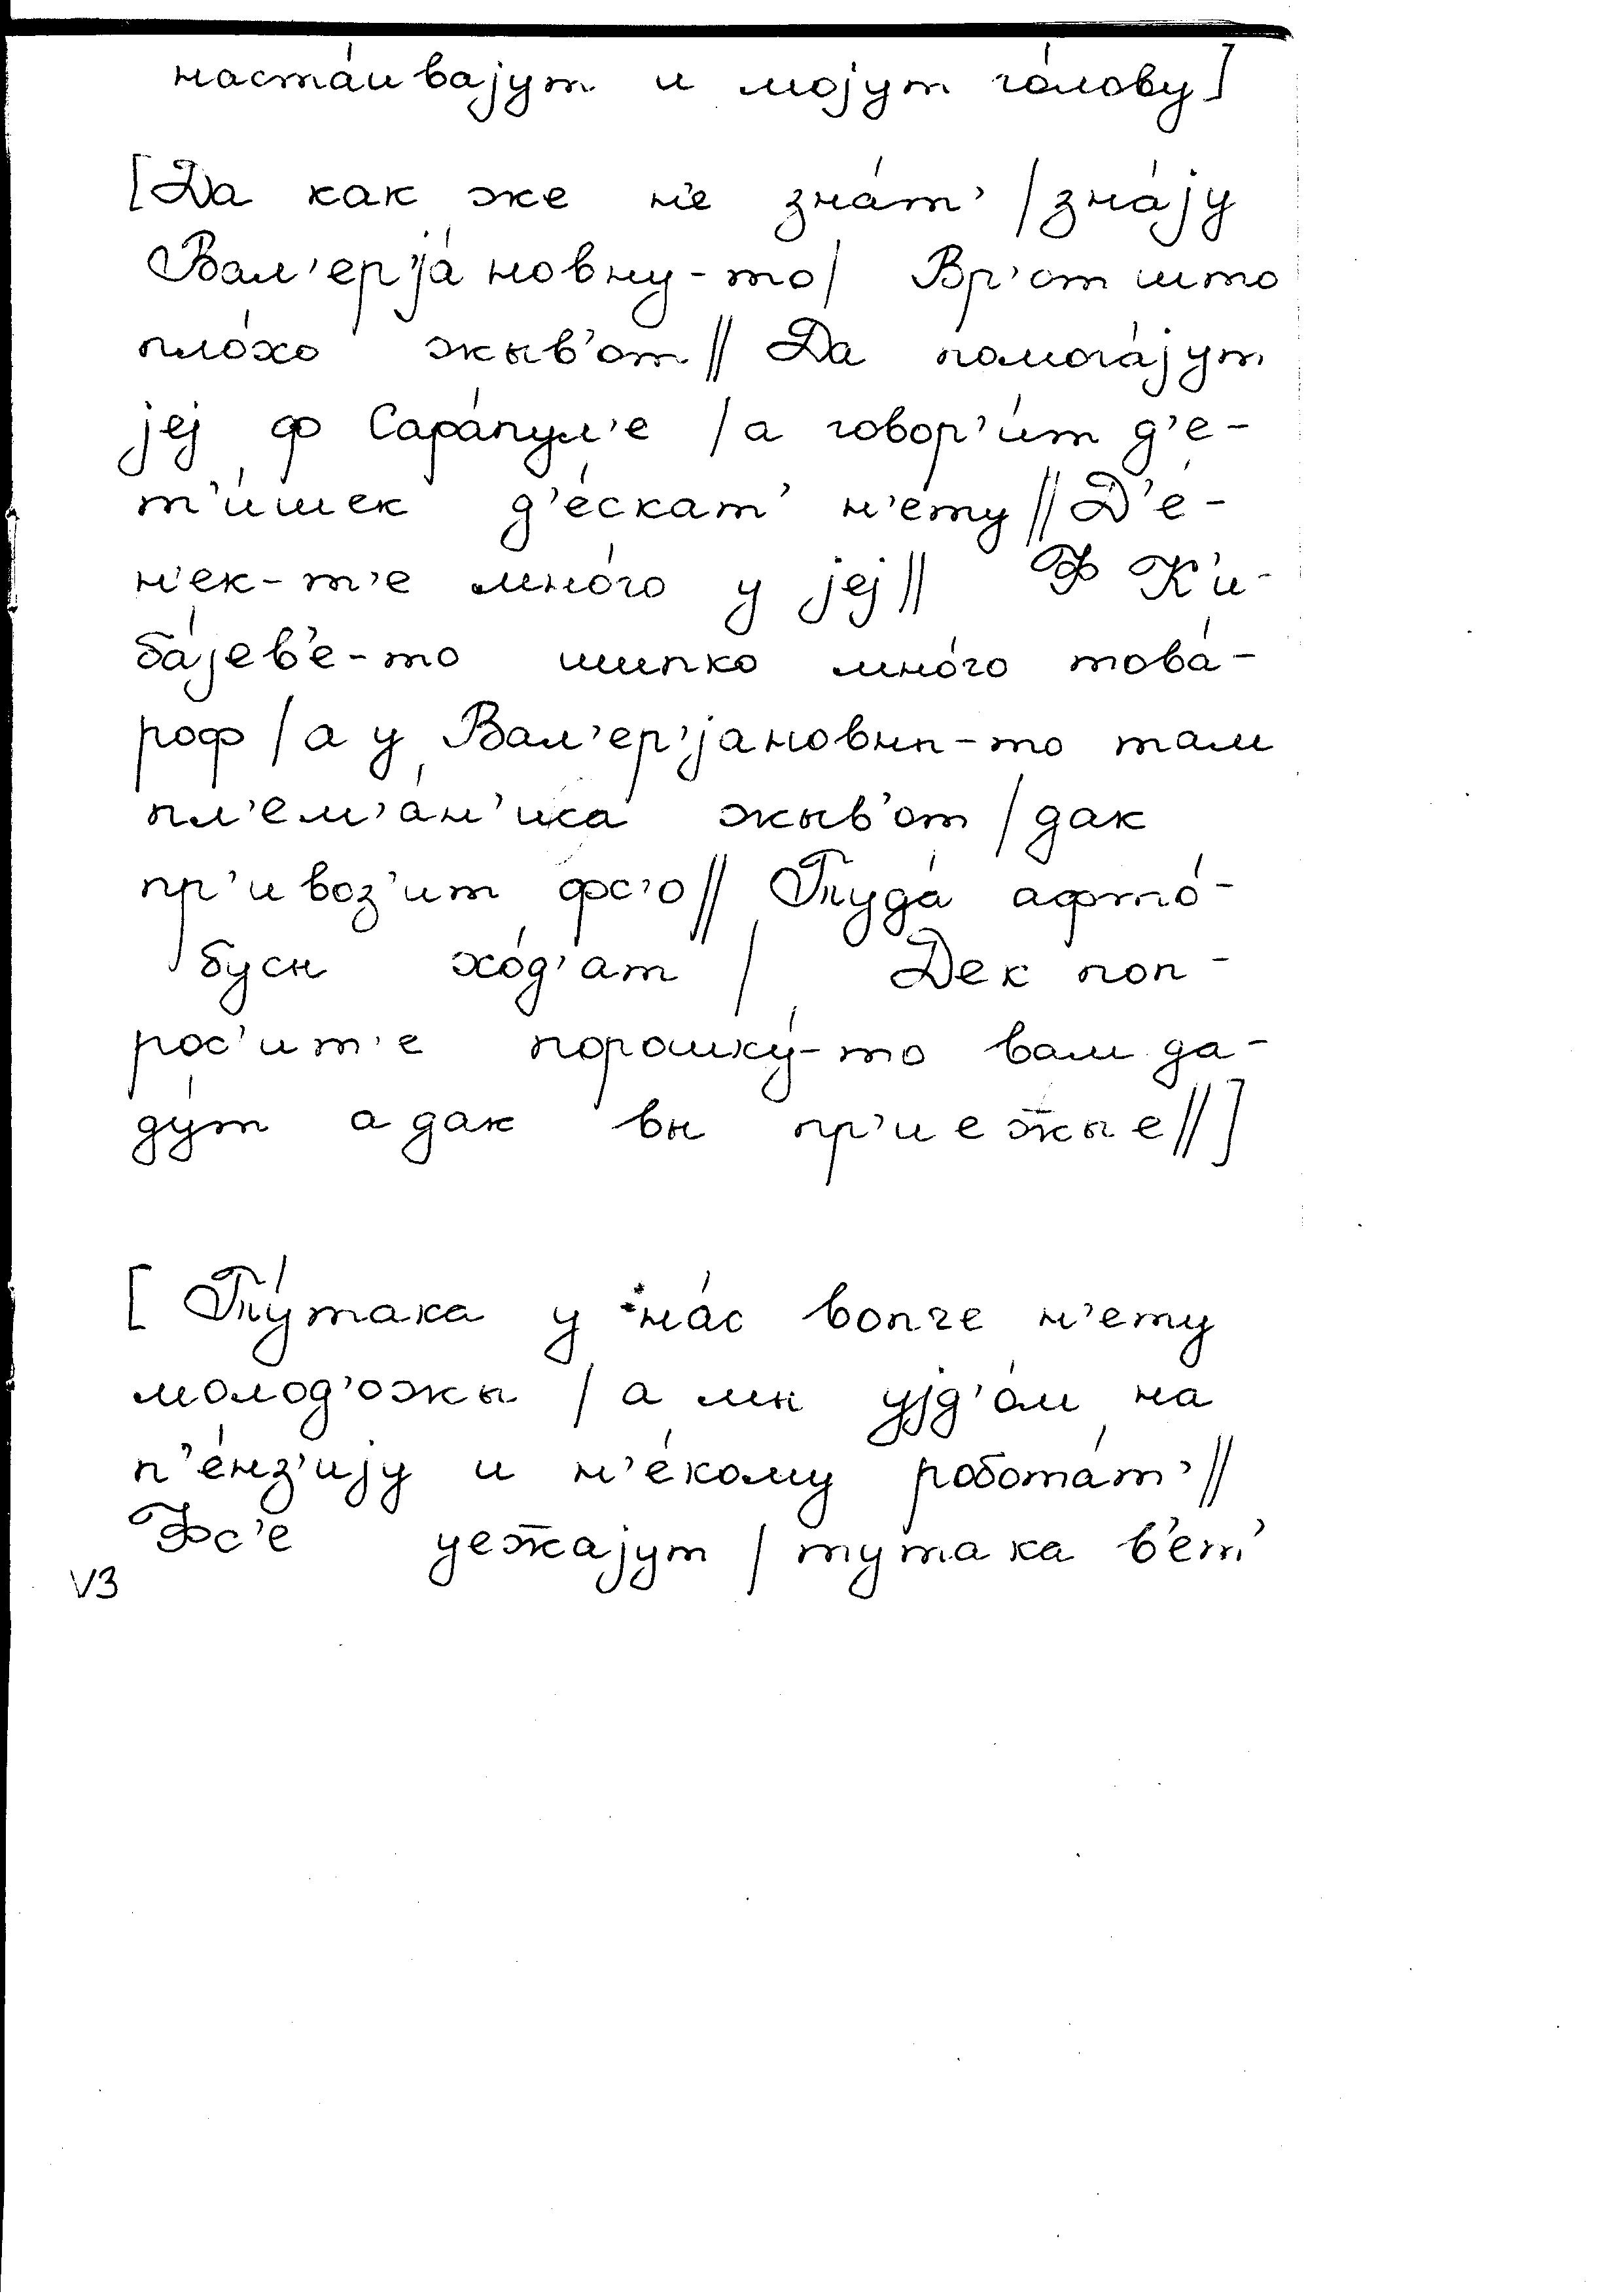 наста́ивајут и мојут го́лову]
[Да как же н'е зна́т' / зна́ју
Вал'ер'ја́новну-то / Вр'от што
пло́хо жыв'от // Да помога́јут
јеј ф Сара́пул'е / а говор'и́т д'е-
т'и́шек д'е́скат' н'е́ту // Д'е́-
н'ек-т'е мно́го у јеј // Ф К'и-
ба́јев'е-то шыпко мно́го това́-
роф / а у Вал'ер'јановны-то там
пл'ем'а́н'иса жыв'от / дак
пр'ивоз'ит фс'о // Туда́ афто́-
бусы хо́д'ат / Дек поп-
рос'ит'е порошку́-то вам да-
ду́т а дак вы пр'иеж̄ые //]
[ Ту́така у на́с вопче н'ету
молод'ожы / а мы ујд'о́м на
п'е́нз'ију и н'е́кому робота́т' //
Фс'е уеж̄ајут / тутака в'ет'
V3